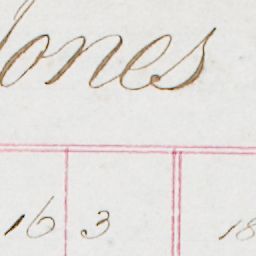 Jones
16 3 18